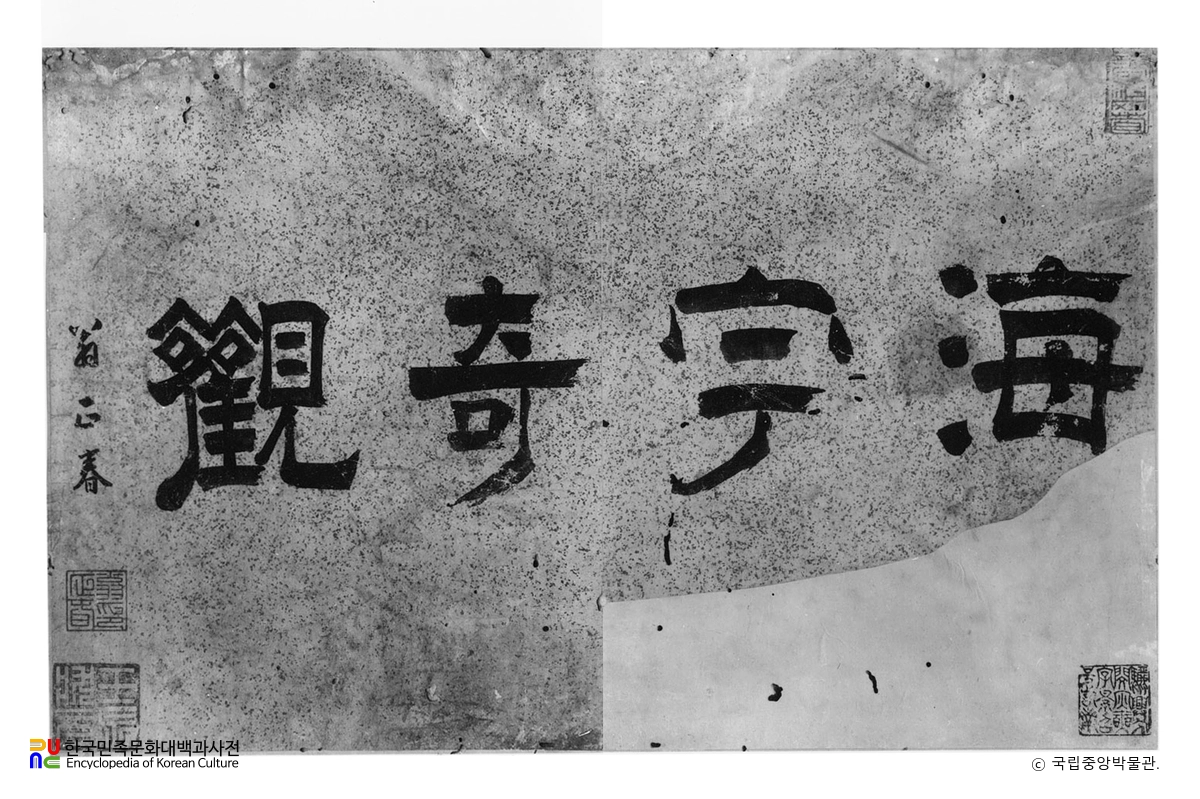 海宇奇觀
翁正春
한국민족문화대백과사전
Encyclopedia of Korean Culture
ⓒ 국립중앙박물관.